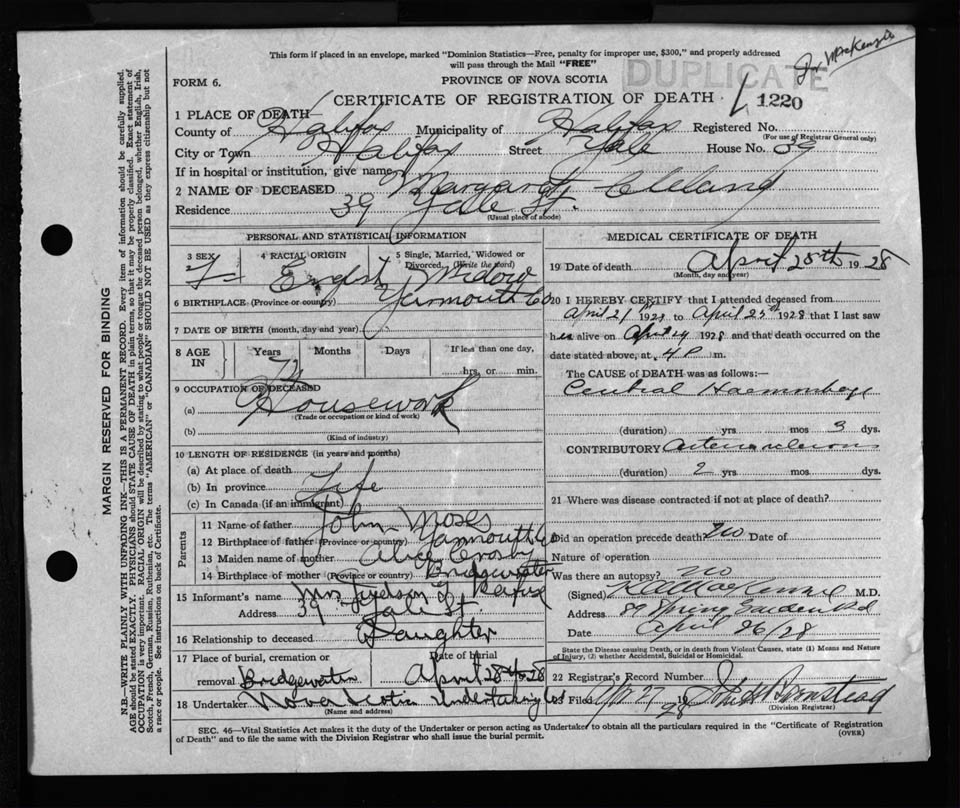 Dr MacKenzie
This form if placed in an envelope, marked "Dominion Statistics—Free, penalty for improper use, $300," and properly addressed
will pass through the Mail "FREE"
DUPLICATE
FORM 6.
PROVINCE OF NOVA SCOTIA
CERTIFICATE OF REGISTRATION OF DEATH
1220
1 PLACE OF DEATH
County of Halifax Municipality of Halifax Registered No.
(For use of Registrar General only)
City or Town Halifax Street Yale House No. 39
If in hospital or institution, give name
2 NAME OF DECEASED Margaret Cleland
Residence 39 Yale St.
(Usual place of abode)
PERSONAL AND STATISTICAL INFORMATION
3 SEX F 4 RACIAL ORIGIN English 5 Single, Married, Widowed or
Divorced (Write the word) Widow
6 BIRTHPLACE (Province or country) Yarmouth Co
7 DATE OF BIRTH (month, day and year)
8 AGE IN Years Months Days If less than one day,
hrs. or min.
9 OCCUPATION OF DECEASED
(a) Housework
(Trade or occupation or kind of work)
(b)
(Kind of industry)
10 LENGTH OF RESIDENCE (in years and months)
(a) At place of death
(b) In province Life
(c) In Canada (if an immigrant)
Parents
11 Name of father John Moses
12 Birthplace of father (Province or country) Yarmouth Co
13 Maiden name of mother Alice Crosby
14 Birthplace of mother (Province or country) Bridgewater
15 Informant's name Mrs
Address 39 Yale St
16 Relationship to deceased Daughter
17 Place of burial, cremation or Date of burial
removal Bridgewater April 28th 1928
18 Undertaker Nova Scotia Undertaking Co
(Name and address)
MEDICAL CERTIFICATE OF DEATH
19 Date of death April 25th 1928
(Month, day and year)
20 I HEREBY CERTIFY that I attended deceased from
April 21 1928 to April 25th 1928 that I last saw
her alive on April 24 1928 and that death occurred on the
date stated above, at 4 P m.
The CAUSE of DEATH was as follows:—
Cerebral Haemorrhage
(duration) yrs mos 3 dys.
CONTRIBUTORY Arteriosclerosis
(duration) 2 yrs mos dys.
21 Where was disease contracted if not at place of death?
Did an operation precede death? No Date of
Nature of operation
Was there an autopsy? No
(Signed) M.D.
Address 89 Spring Garden Rd
Date April 26/28
State the Disease causing Death, or in death from Violent Causes, state (1) Means and Nature
of Injury, (2) whether Accidental, Suicidal or Homicidal.
22 Registrar's Record Number
23 Filed Apr 27 1928 John H Barnstead
(Division Registrar)
SEC. 46—Vital Statistics Act makes it the duty of the Undertaker or person acting as Undertaker to obtain all the particulars required in the "Certificate of Registration
of Death" and to file the same with the Division Registrar who shall issue the burial permit.
(OVER)
MARGIN RESERVED FOR BINDING
N.B.—WRITE PLAINLY WITH UNFADING INK—THIS IS A PERMANENT RECORD. Every item of information should be carefully supplied.
AGE should be stated EXACTLY. PHYSICIANS should STATE CAUSE OF DEATH in plain terms, so that it may be properly classified. Exact statement of
OCCUPATION is very important. RACIAL ORIGIN will be described by stating to what people or tongue the deceased person belonged, whether English, Irish,
Scotch, French, German, Russian, Ruthenian, etc. The terms "AMERICAN" or "CANADIAN" SHOULD NOT BE USED as they express citizenship but not
a race or people. See instructions on back of Certificate.